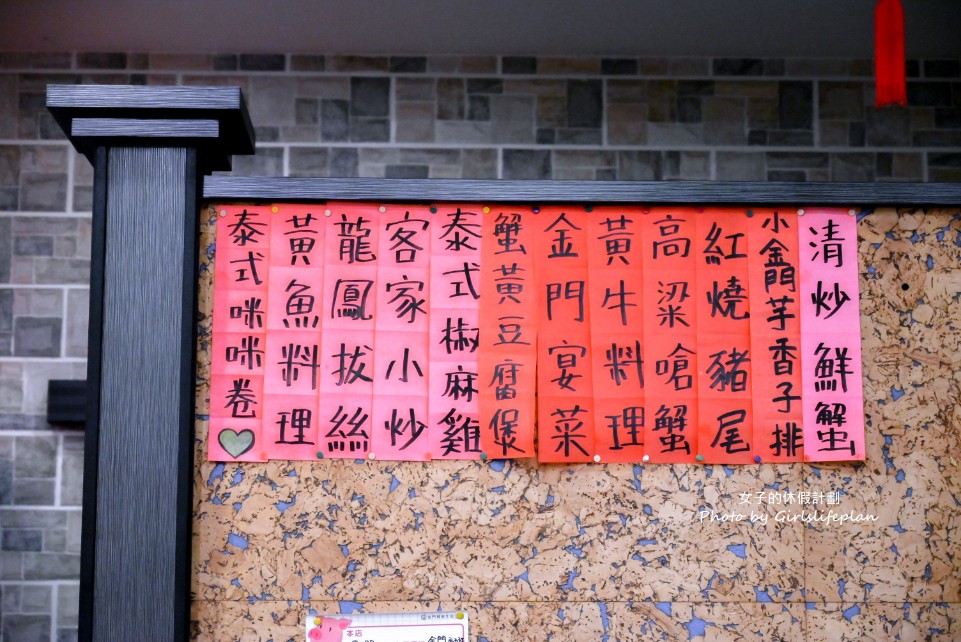 清炒鮮蟹
小金門芋香子排
紅燒豬尾
高粱嗆蟹
黃牛料理
金門宴菜
蟹黃豆腐煲
泰式椒麻雞
客家小炒
龍鳳拔絲
黃魚料理
泰式咪咪卷
女子的休假計劃
Photo by Girlslifeplan
本店